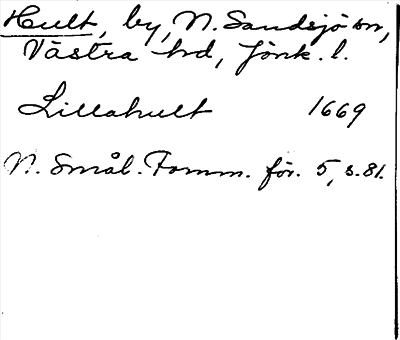 Hult, by, N. Sandsjö sn,
Västra hd, Jönk. l.
Lillahult 1669
N. Smål. Fornm. för. 5, s. 81.